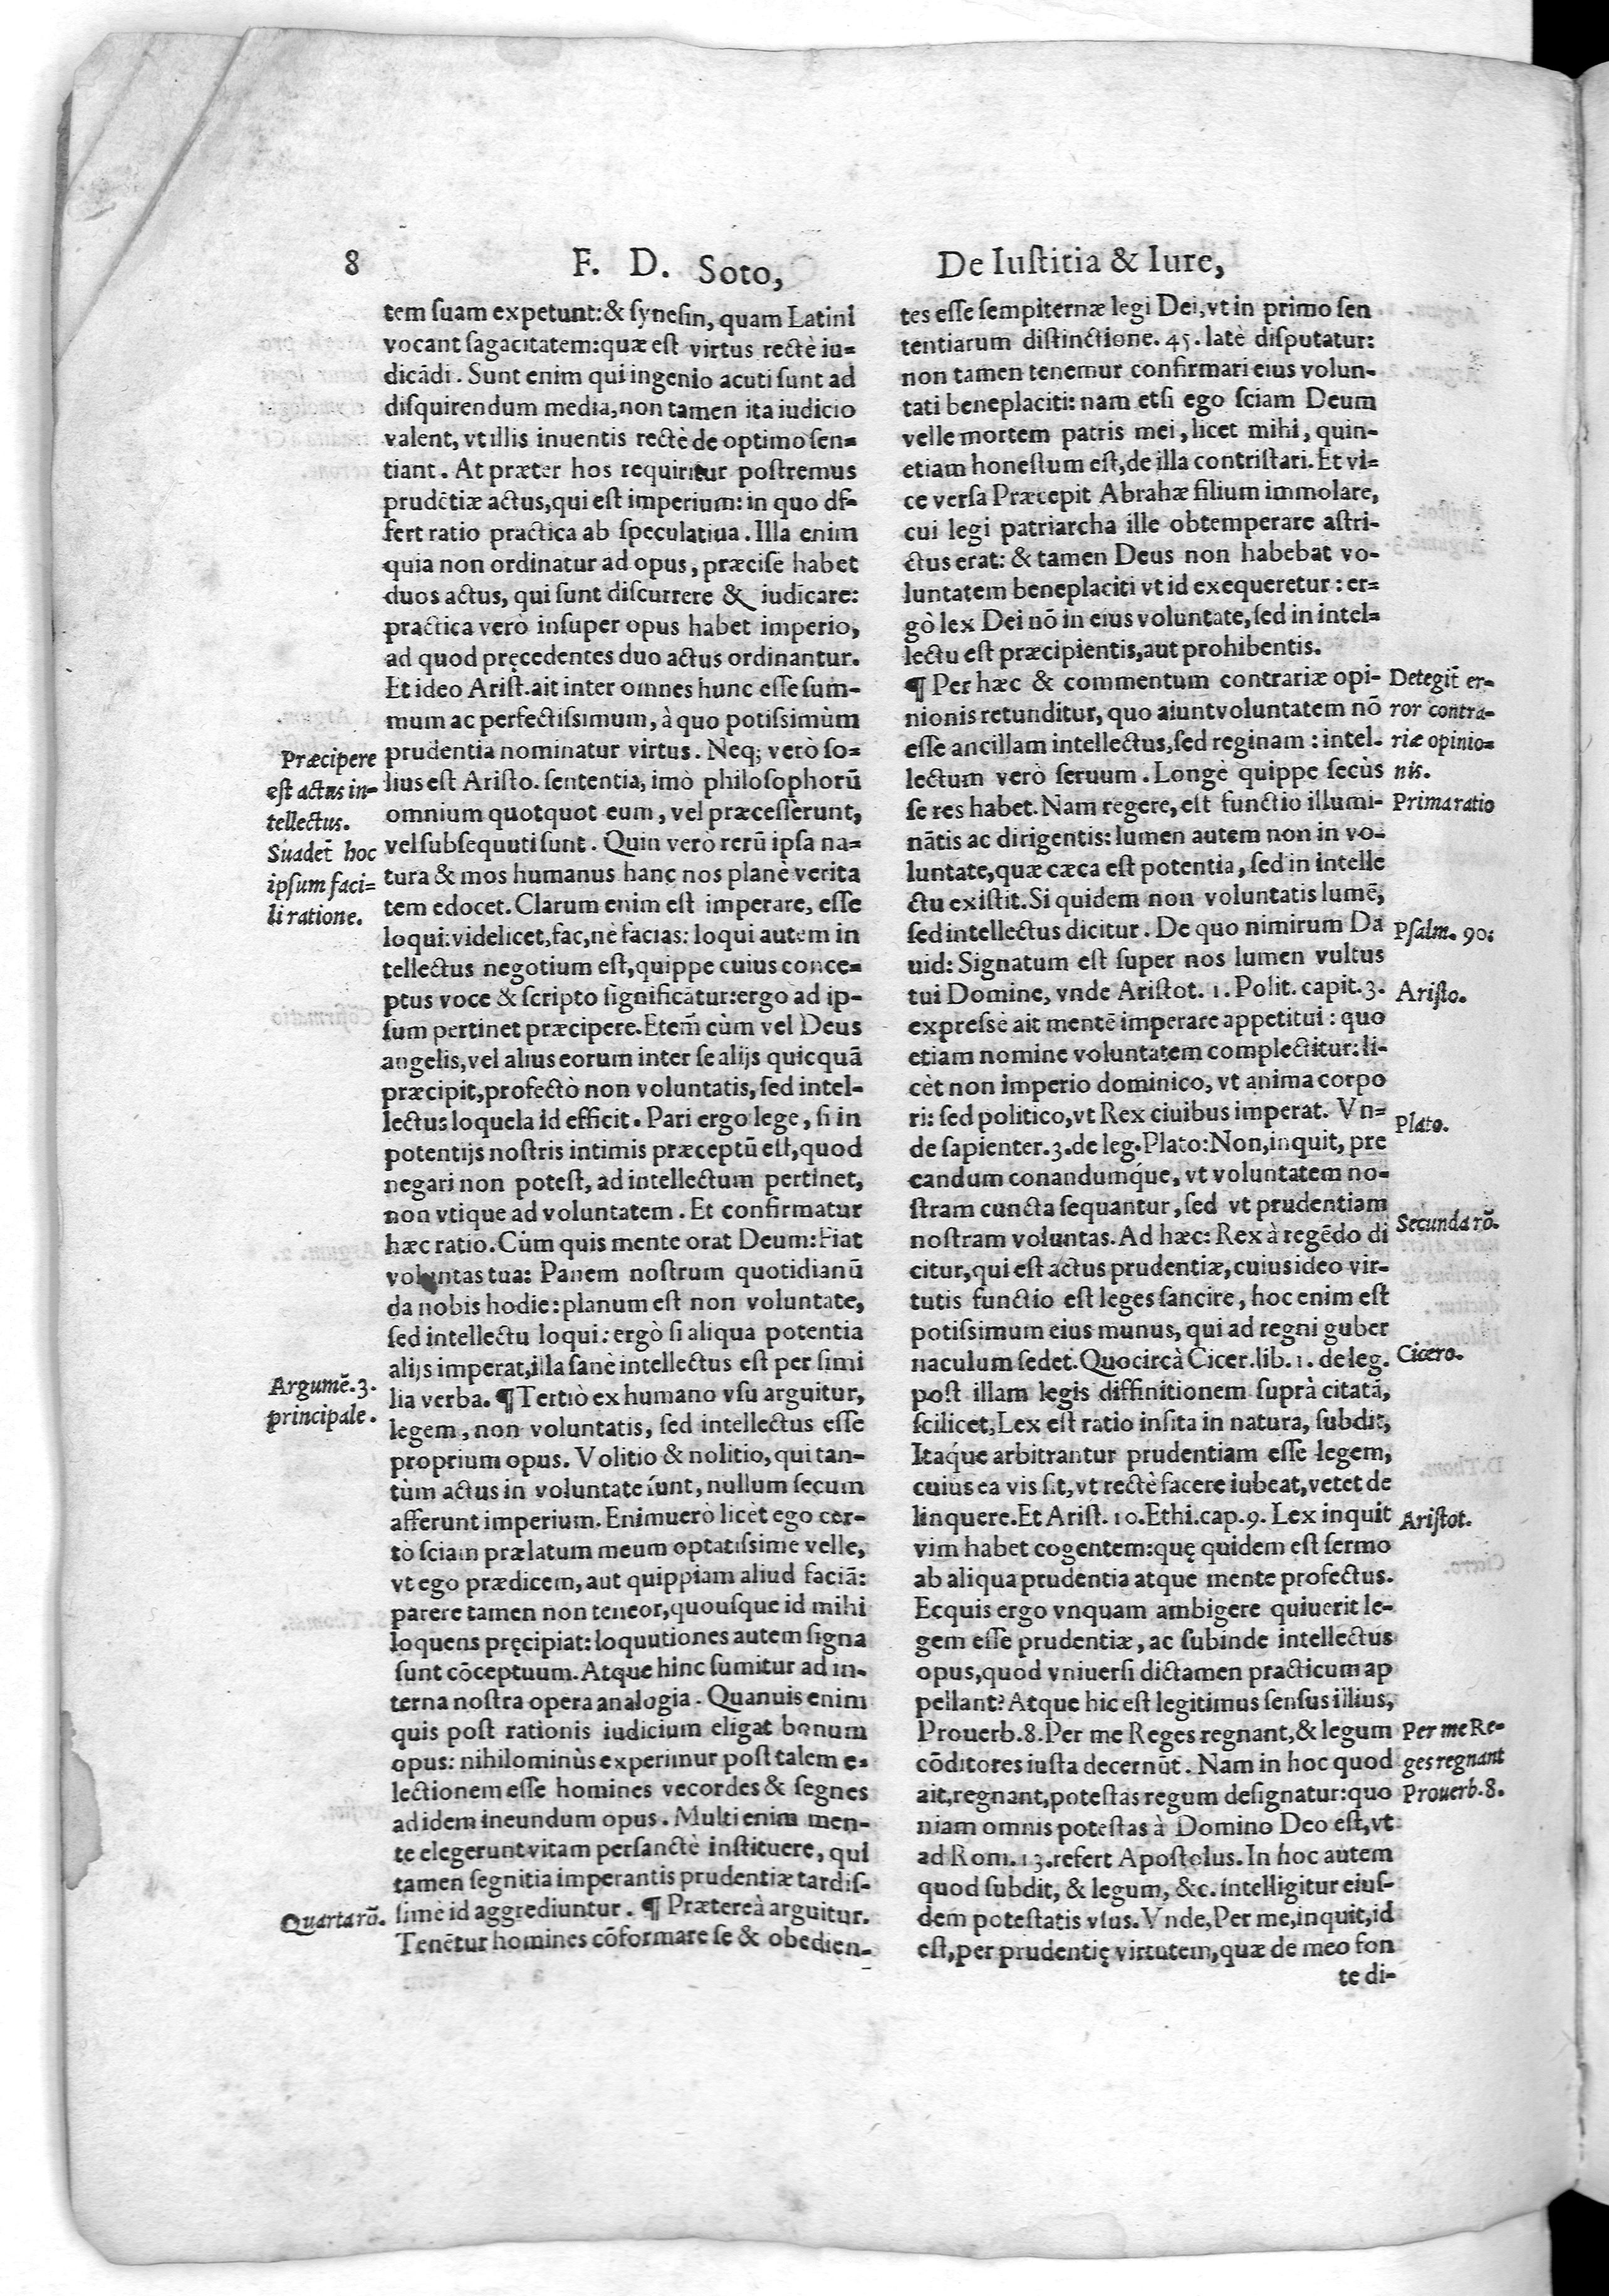 8 F. D. Soto, De Iuſtitia & Iure,
tem ſuam expetunt:& ſyneſin, quam Latini
vocant ſagacitatem:quæ eſt virtus rectè iu=
dicādi. Sunt enim qui ingenio acuti ſunt ad
diſquirendum media, non tamen ita iudicio
valent, vt illis inuentis rectè de optimo ſen=
tiant. At præter hos requiritur poſtremus
prudētiæ actus, qui eſt imperium: in quo df-
fert ratio practica ab ſpeculatiua. Illa enim
quia non ordinatur ad opus, præciſe habet
duos actus, qui ſunt diſcurrere & iudicare:
practica verò inſuper opus habet imperio,
ad quod pręcedentes duo actus ordinantur.
Et ideo Ariſt. ait inter omnes hunc eſſe ſum-
mum ac perfectiſsimum, à quo potiſsimùm
prudentia nominatur virtus. Neq; verò ſo=
lius eſt Ariſto. ſententia, imò philoſophorū
omnium quotquot eum, vel præceſſerunt,
vel ſubſequuti ſunt. Quin verò rerū ipſa na=
tura & mos humanus hanc nos planè verita
tem edocet. Clarum enim eſt imperare, eſſe
loqui: videlicet, fac, nè facias: loqui autem in
tellectus negotium eſt, quippe cuius conce=
ptus voce & ſcripto ſignificātur:ergo ad ip-
ſum pertinet præcipere. Etem̄ cùm vel Deus
angelis, vel alius eorum inter ſe alijs quicquā
præcipit, profectò non voluntatis, ſed intel-
lectus loquela id efficit. Pari ergo lege, ſi in
potentijs noſtris intimis præceptū eſt, quod
negari non poteſt, ad intellectum pertinet,
non vtique ad voluntatem. Et confirmatur
hæc ratio. Cùm quis mente orat Deum: Fiat
voluntas tua: Panem noſtrum quotidianū
da nobis hodie: planum eſt non voluntate,
ſed intellectu loqui: ergò ſi aliqua potentia
alijs imperat, illa ſanè intellectus eſt per ſimi
lia verba. ¶ Tertiò ex humano vſu arguitur,
legem, non voluntatis, ſed intellectus eſſe
proprium opus. Volitio & nolitio, qui tan-
tùm actus in voluntate ſunt, nullum ſecum
afferunt imperium. Enimuerò licèt ego cer-
tò ſciam prælatum meum optatiſsime velle,
vt ego prædicem, aut quippiam aliud faciā:
parere tamen non teneor, quouſque id mihi
loquens pręcipiat: loquutiones autem ſigna
ſunt cōceptuum. Atque hinc ſumitur ad in-
terna noſtra opera analogia. Quanuis enim
quis poſt rationis iudicium eligat bonum
opus: nihilominùs experimur poſt talem e-
lectionem eſſe homines vecordes & ſegnes
ad idem ineundum opus. Multi enim men-
te elegerunt vitam perſanctè inſtituere, qui
tamen ſegnitia imperantis prudentiæ tardiſ-
ſimè id aggrediuntur. ¶ Prætereà arguitur.
Tenētur homines cōformare ſe & obedien-
Præcipere
eſt actus in-
tellectus.
Suadet̄ hoc
ipſum faci=
li ratione.
Argumē. 3.
principale.
Quarta rō.
tes eſſe ſempiternæ legi Dei, vt in primo ſen
tentiarum diſtinctione. 45. latè diſputatur:
non tamen tenemur confirmari eius volun-
tati beneplaciti: nam etſi ego ſciam Deum
velle mortem patris mei, licet mihi, quin-
etiam honeſtum eſt, de illa contriſtari. Et vi=
ce verſa Præcepit Abrahæ filium immolare,
cui legi patriarcha ille obtemperare aſtri-
ctus erat: & tamen Deus non habebat vo-
luntatem beneplaciti vt id exequeretur: er=
gò lex Dei nō in eius voluntate, ſed in intel=
lectu eſt præcipientis, aut prohibentis.
¶ Per hæc & commentum contrariæ opi-
nionis retunditur, quo aiunt voluntatem nō
eſſe ancillam intellectus, ſed reginam: intel-
lectum verò ſeruum. Longè quippe ſecùs
ſe res habet. Nam regere, eſt functio illumi-
nātis ac dirigentis: lumen autem non in vo-
luntate, quæ cæca eſt potentia, ſed in intelle
ctu exiſtit. Si quidem non voluntatis lumē,
ſed intellectus dicitur. De quo nimirum Da
uid: Signatum eſt ſuper nos lumen vultus
tui Domine, vnde Ariſtot. 1. Polit. capit. 3.
expreſsè ait mentē imperare appetitui: quo
etiam nomine voluntatem complectitur: li-
cèt non imperio dominico, vt anima corpo
ri: ſed politico, vt Rex ciuibus imperat. Vn=
de ſapienter. 3. de leg. Plato: Non, inquit, pre
candum conandumq́ue, vt voluntatem no-
ſtram cuncta ſequantur, ſed vt prudentiam
noſtram voluntas. Ad hæc: Rex à regēdo di
citur, qui eſt actus prudentiæ, cuius ideo vir-
tutis functio eſt leges ſancire, hoc enim eſt
potiſsimum eius munus, qui ad regni guber
naculum ſedet. Quocircà Cicer. lib. 1. de leg.
poſt illam legis diffinitionem ſuprà citatā,
ſcilicet, Lex eſt ratio inſita in natura, ſubdit,
Itaq́ue arbitrantur prudentiam eſſe legem,
cuius ea vis ſit, vt rectè facere iubeat, vetet de
linquere. Et Ariſt. 10. Ethi. cap. 9. Lex inquit
vim habet cogentem: quę quidem eſt ſermo
ab aliqua prudentia atque mente profectus.
Ecquis ergo vnquam ambigere quiuerit le-
gem eſſe prudentiæ, ac ſubinde intellectus
opus, quod vniuerſi dictamen practicum ap
pellant? Atque hic eſt legitimus ſenſus illius,
Prouerb. 8. Per me Reges regnant, & legum
cōditores iuſta decernūt. Nam in hoc quod
ait, regnant, poteſtas regum deſignatur: quo
niam omnis poteſtas à Domino Deo eſt, vt
ad Rom. 13. refert Apoſtolus. In hoc autem
quod ſubdit, & legum, &c. intelligitur eiuſ-
dem poteſtatis vſus. Vnde, Per me, inquit, id
eſt, per prudentię virtutem, quæ de meo fon
te di-
Detegit̄ er-
ror contra-
riæ opinio=
nis.
Prima ratio
Pſalm. 90:
Ariſto.
Plato.
Secunda rō.
Cicero.
Ariſtot.
Per me Re-
ges regnant
Prouerb. 8.